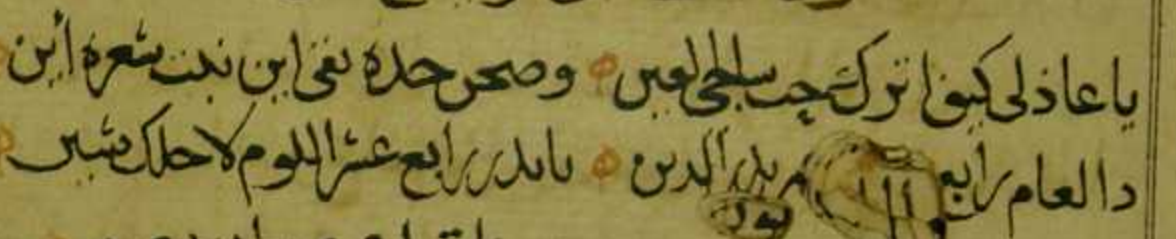 يا عاذلي كيف اترك حب ساجي العين وصحن خده نقي اين نبت شعره أين
دا العام رابع بدر الدين يا بدر رابع عشر اللوم لاحلك شين